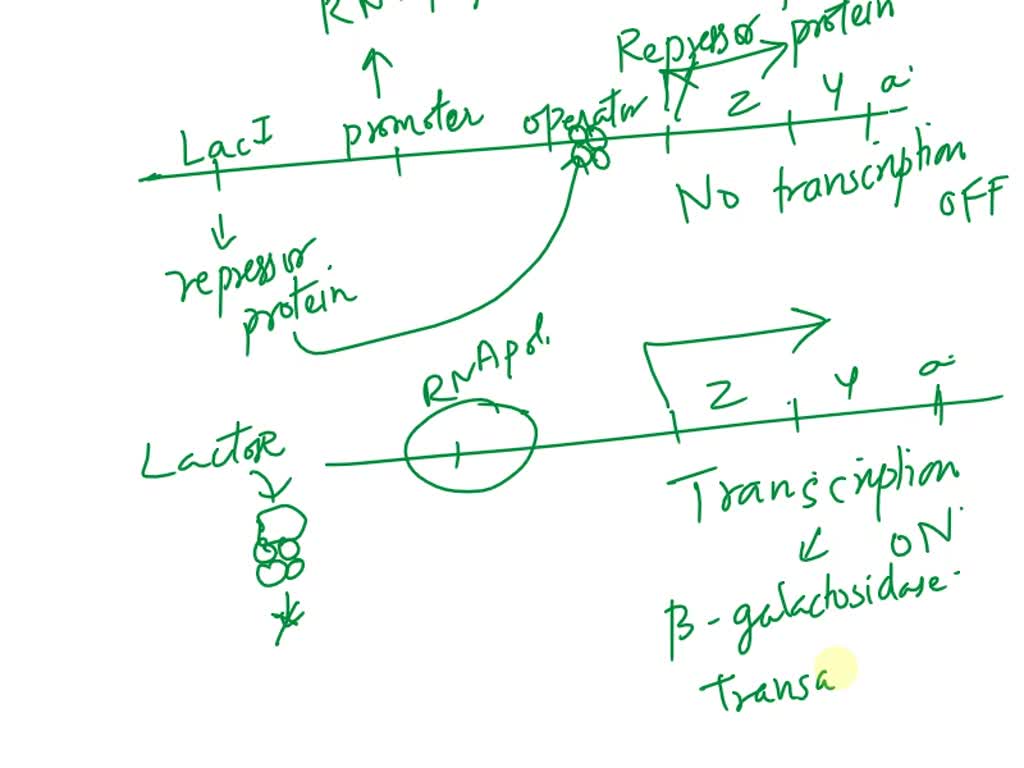 Repressor protein
LacI promoter operator Z Y a
No transcription OFF
repressor
protein
RNA pol.
Z Y a
Lactose
Transcription
ON
β-galactosidase
Transa